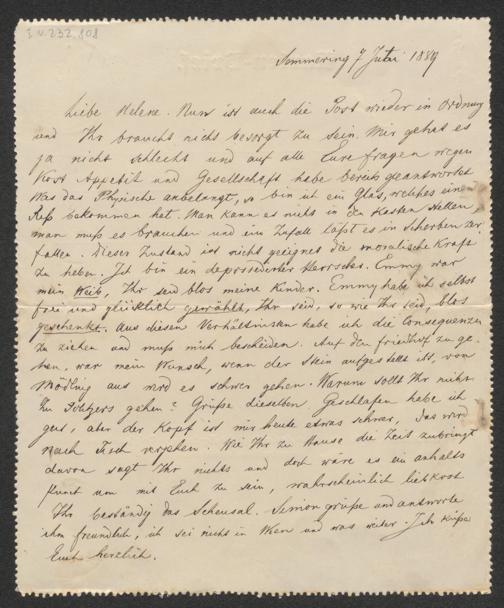 I.N.232.108
Semmering 7 Juli 1889
Liebe Helene. Nun ist auch die Post wieder in Ordnung
und Ihr braucht nicht besorgt zu sein. Mir geht es
ja nicht schlecht und auf alle Eure Fragen wegen
Kost Appetit und Gesellschaft habe bereits geantwortet
Was das Physische anbelangt, so bin ich ein Glas, welches einen
Riß bekommen hat. Man kann es nicht in den Kasten stellen,
man muß es brauchen und ein Zufall läßt es in Scherben zer-
fallen. Dieser Zustand ist nicht geeignet die moralische Kraft
zu heben. Ich bin ein depossedierter Herrscher. Emmy war
mein Weib, Ihr seid blos meine Kinder. Emmy habe ich selbst
frei und glücklich gewählt, Ihr seid, so wie Ihr seid, blos
geschenkt. Aus diesen Verhältnissen habe ich die Consequenzen
zu ziehen und muß mich bescheiden. Auf den Friedhof zu ge-
hen, war mein Wunsch, wenn der Stein aufgestellt ist, von
Mödling aus wird es schwer gehen. Warum sollt Ihr nicht
zu gehen? Grüße dieselben Geschlafen habe ich
gut, aber der Kopf ist mir heute etwas schwer, das wird
nach Tisch vergehen. Wie Ihr zu Hause die Zeit zubringt
davon sagt Ihr nichts und doch wäre es ein Anhalts
punkt um mit Euch zu sein, wahrscheinlich liebkost
Ihr beständig das Scheusal. Simon grüße und antworte
ihm freundlich, ich sei nicht in Wien und was weiter. Ich küße
Euch herzlich.